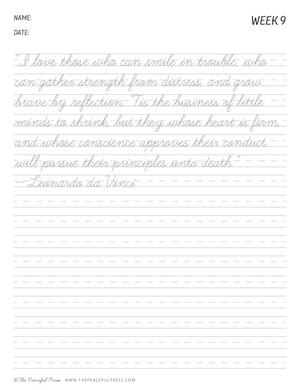 NAME:
WEEK 9
DATE:
"I love those who can smile in trouble, who
can gather strength from distress, and grow
brave by reflection. 'Tis the business of little
minds to shrink, but they whose heart is firm,
and whose conscience approves their conduct,
will pursue their principles unto death."
-Leonardo da Vinci
©The Peaceful Press WWW.THEPEACEFULPRESS.COM